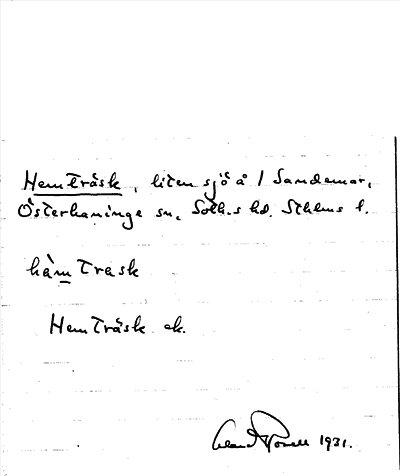 Hemträsk, liten sjö å / Sandemar,
Österhaninge sn, Soth.s hd. Sthlms l.
hàm trask
Hemträsk ek.
1931.